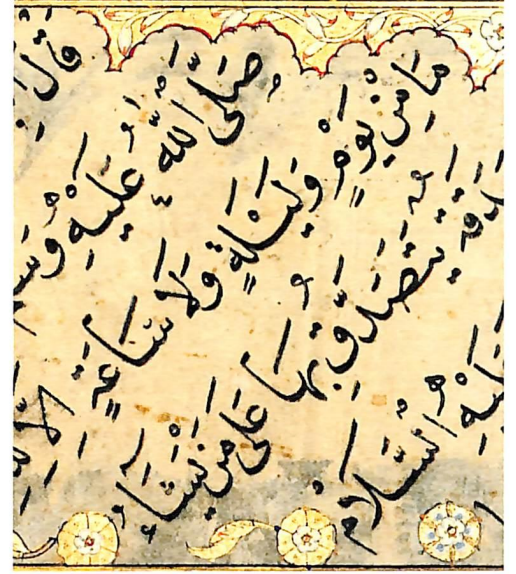 قَالَ
صَلَّى اللّٰهُ عَلَيْهِ وَسَـ
مَا مِنْ يَوْمٍ وَلَيْلَةٍ وَلَا سَاعَةٍ اِلَّا
ـدَقَةٌ يَتَصَدَّقُ بِهَا عَلَى مَنْ يَشَاءُ
ـلَيْهِ السَّلَامُ